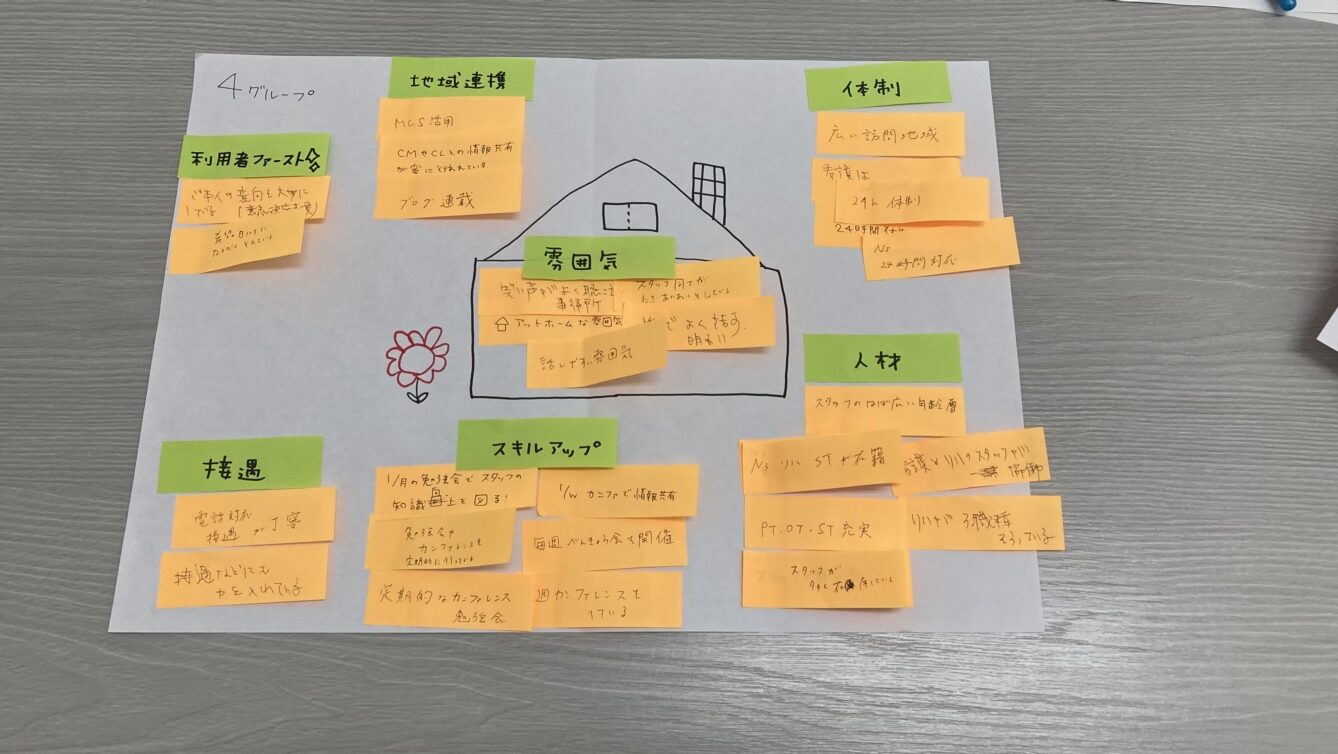 4グループ
地域連携
MCS活用
CMやCLとの情報共有
が密に行われている
ブログ連載
利用者ファースト
ご本人の意向を大事に
している
体制
広い訪問地域
看護は
24h 体制
24時間
Ns
24時間対応
雰囲気
笑い声がよく聴こ
事務所
スタッフ同士が
アットホームな雰囲気
よく話す
明るい
話しやすい雰囲気
人材
スタッフのはば広い年齢層
Ns リハ STが在籍
PT.OT.ST充実
リハが3職種
そろっている
スタッフが
接遇
電話対応
接遇 が丁寧
接遇などにも
力を入れている
スキルアップ
1/月の勉強会でスタッフの
知識向上を図る!
勉強会や
カンファレンスを
定期的に行っている
定期的なカンファレンス
勉強会
1/W カンファで情報共有
毎週べんきょう会を開催
週カンファレンスを